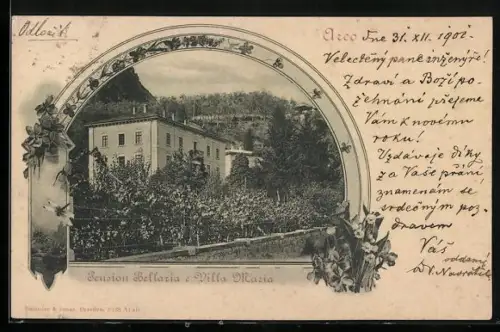 Odložit
Arco dne 31. XII. 1902
Velectěný pane inženýře!
Zdraví a Boží po-
žehnání přejeme
Vám k novému
roku!
Vzdávaje díky
za Vaše přání
znamenám se
srdečným poz-
dravem
Váš
oddaný
Pension Bellaria e Villa Maria